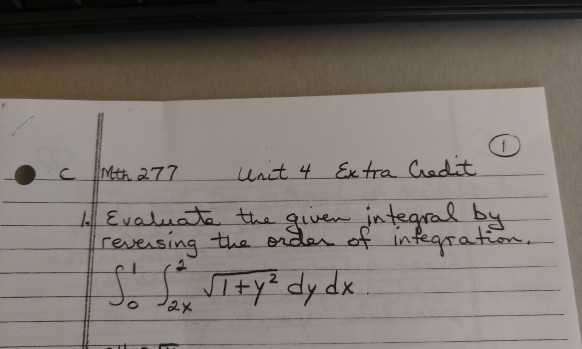 1
C Mth 277 Unit 4 Extra Credit
1. Evaluate the given integral by
reversing the order of integration.
∫₀¹ ∫₂ₓ² √(1+y²) dy dx.